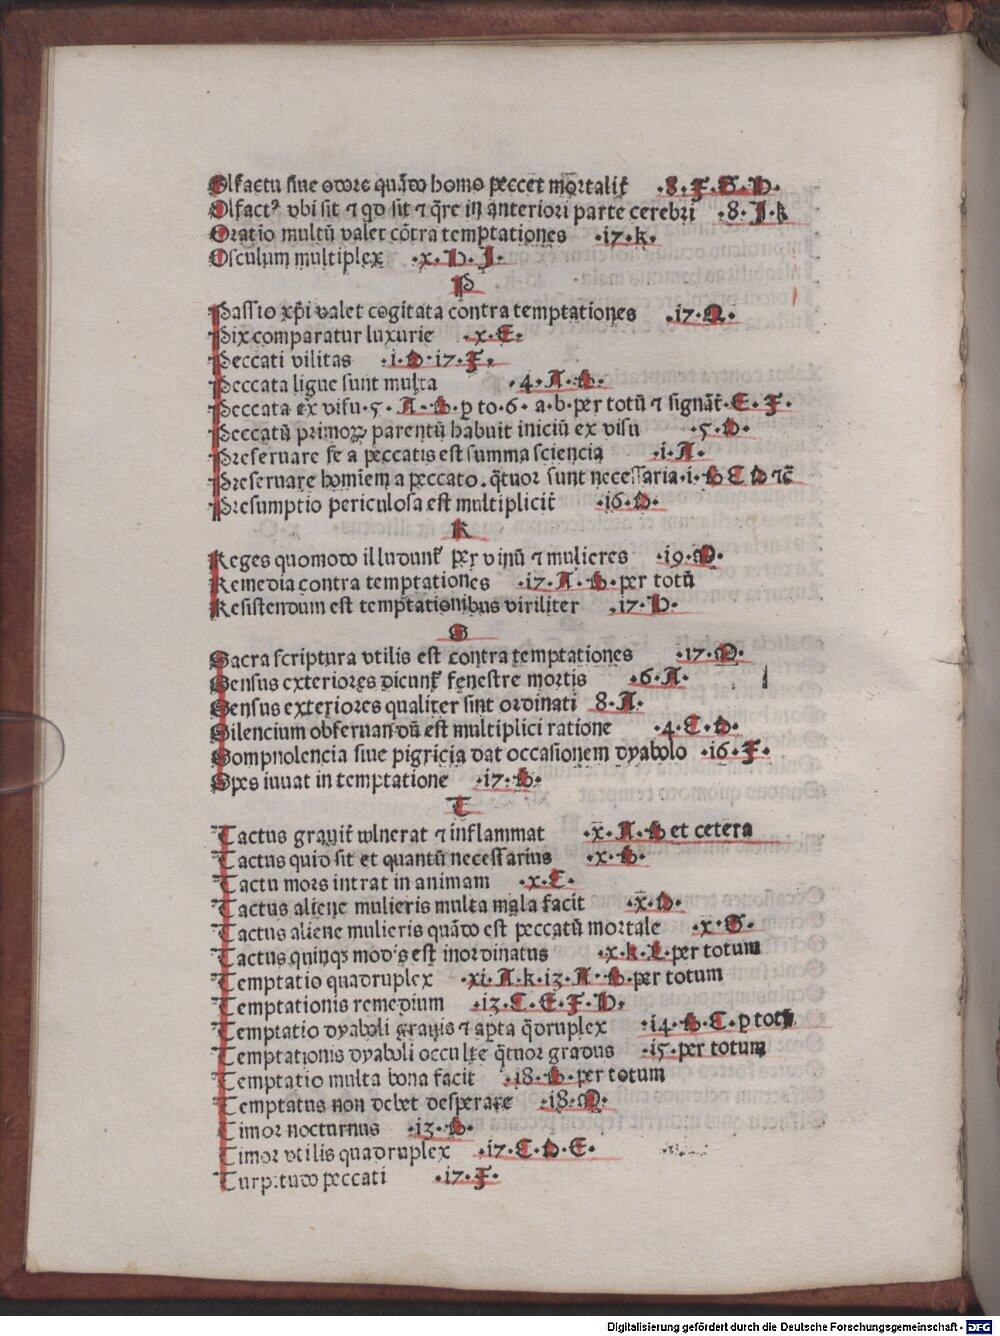 Olfactu siue odore quādo homo peccet mortalit̄ ·8·F·G·H·
Olfactꝰ vbi sit ⁊ qd sit ⁊ q̄re in anteriori parte cerebri ·8·J·k
Oratio multū valet cōtra temptationes ·17·k·
Osculum multiplex ·x·H·J·
P
Passio xp̄i valet cogitata contra temptationes ·17·N·
Pix comparatur luxurie ·x·E·
Peccati vilitas ·i·D·17·F·
Peccata ligue sunt multa ·4·A·B·
Peccata ex visu·5·A·B·p to·6·a·b·per totū ⁊ signāt̄·E·F·
Peccatū primoꝝ parentū habuit iniciū ex visu ·5·D·
Preseruare se a peccatis est summa sciencia ·i·A·
Preseruare homiem a peccato·q̄tuor sunt necessaria·i·B C D ⁊c̄
Presumptio periculosa est multiplicit̄ ·16·D·
R
Reges quomodo illudunt̄ per vinū ⁊ mulieres ·19·M·
Remedia contra temptationes ·17·A·B·per totū
Resistendum est temptationibus viriliter ·17·H·
S
Sacra scriptura vtilis est contra temptationes ·17·M·
Sensus exteriores dicunt̄ fenestre mortis ·6·A·
Sensus exteriores qualiter sint ordinati 8·A·
Silencium obseruandū est multiplici ratione ·4·C·D·
Sompnolencia siue pigricia dat occasionem dyabolo ·16·F·
Spes iuuat in temptatione ·17·B·
T
Tactus grauit̄ wlnerat ⁊ inflammat ·x·A·B et cetera
Tactus quid sit et quantū necessarius ·x·B·
Tactu mors intrat in animam ·x·C·
Tactus aliene mulieris multa mala facit ·x·D·
Tactus aliene mulieris quādo est peccatū mortale ·x·G·
Tactus quinqꝫ modis est inordinatus ·x·k·L·per totum
Temptatio quadruplex ·xi·A·k·12·A·B·per totum
Temptationis remedium ·13·C·E·F·H·
Temptatio dyaboli grauis ⁊ apta q̄druplex ·14·B·C·p totū
Temptationis dyaboli occulte q̄tuor gradus ·15·per totum
Temptatio multa bona facit ·18·B·per totum
Temptatus non debet desperare ·18·M·
Timor nocturnus ·13·B·
Timor vtilis quadruplex ·17·C·D·E·
Turpitudo peccati ·17·F·
Digitalisierung gefördert durch die Deutsche Forschungsgemeinschaft - DFG